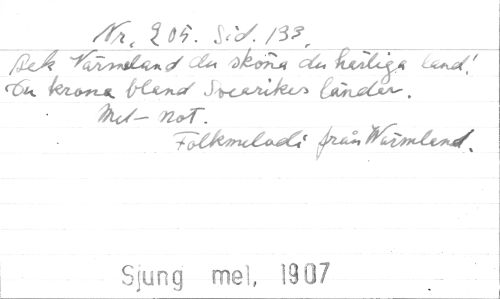 Nr. 205. Sid. 133.
Ack Värmeland du sköna du härliga land!
Du krona bland Svearikes länder.
Mel-not.
Folkmelodi från Wärmland.
Sjung mel, 1907